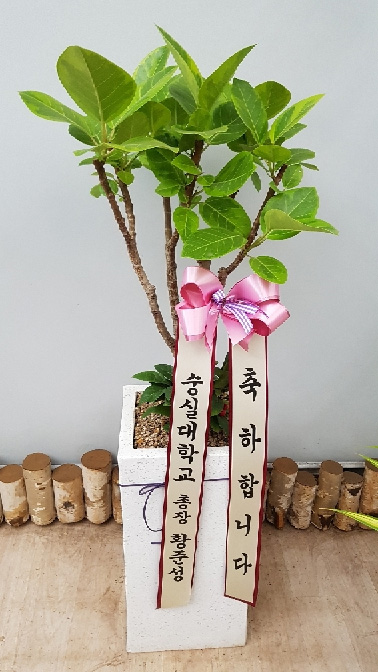 숭실대학교 총장 황준성
축하합니다